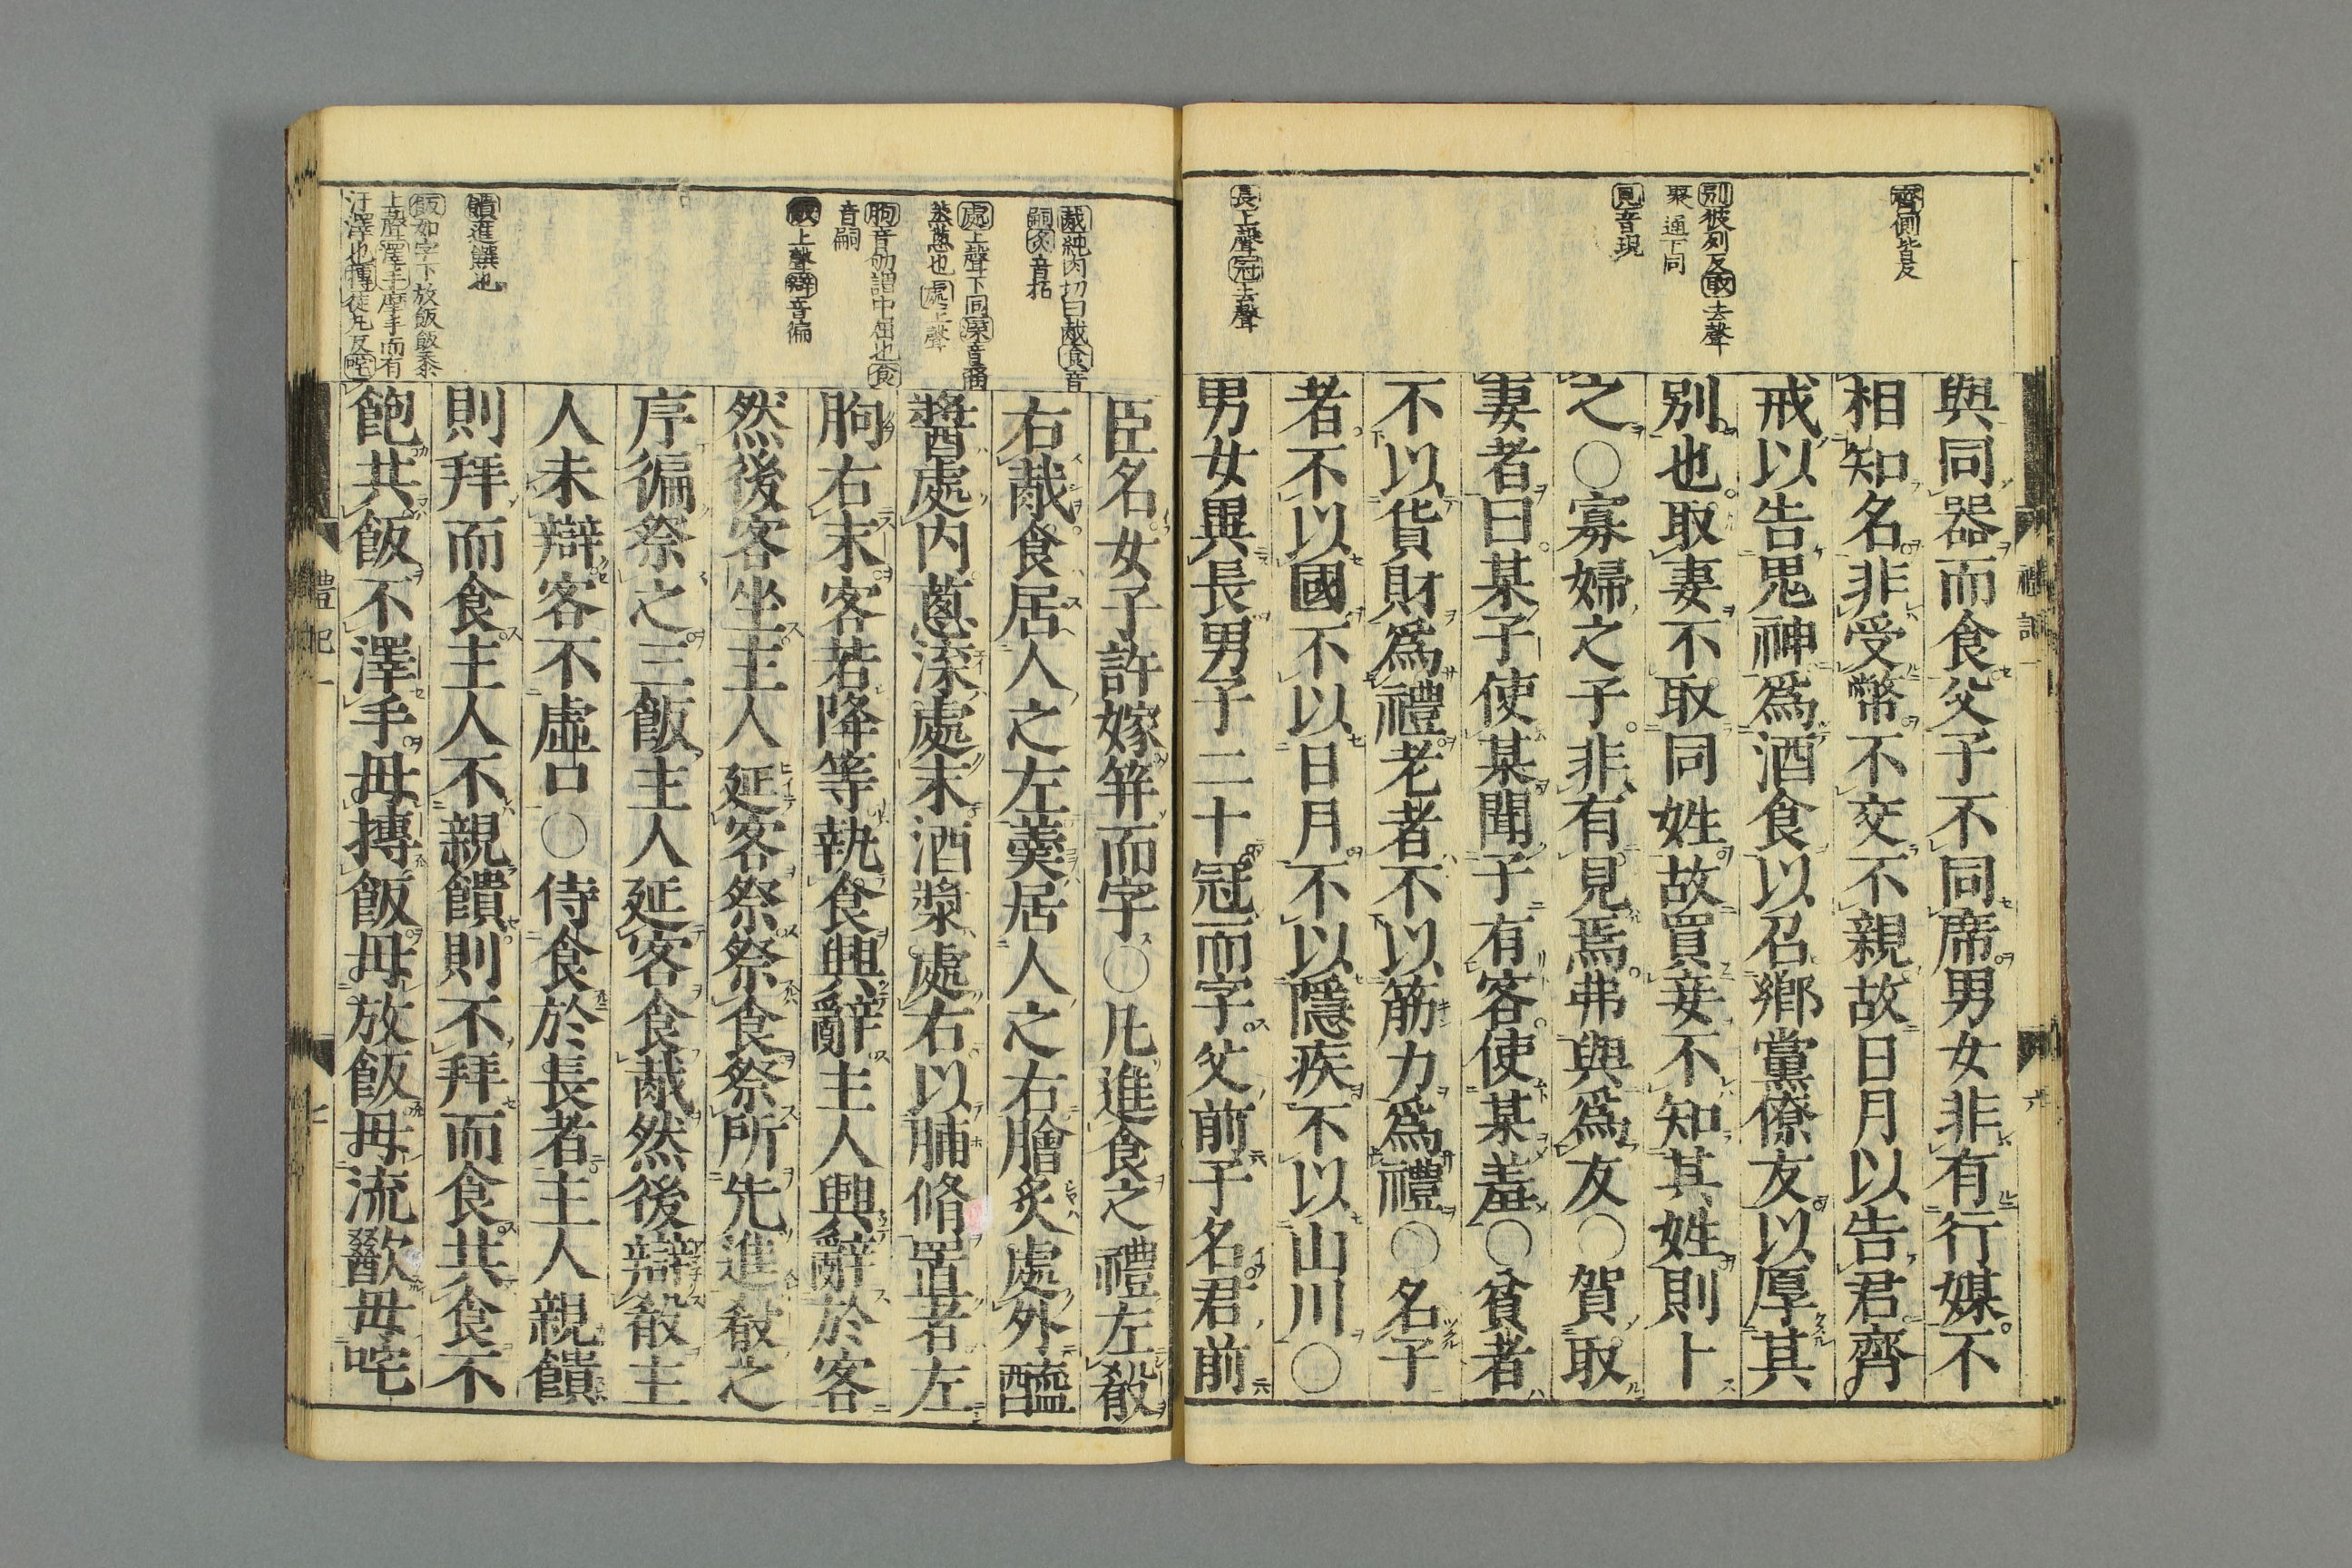 齊側皆反
別彼列反取去聲
聚通下同
見音現
長上聲冠去聲
與同器而食父子不同席男女非有行媒不
相知名非受幣不交不親故日月以告君齊
戒以告鬼神爲酒食以召鄉黨僚友以厚其
別也取妻不取同姓故買妾不知其姓則卜
之○寡婦之子非有見焉弗與爲友○賀取
妻者曰某子使某聞子有客使某羞○貧者
不以貨財爲禮老者不以筋力爲禮○名子
者不以國不以日月不以隱疾不以山川○
男女異長男子二十冠而字父前子名君前
胾純肉切曰胾食音
嗣炙音拓
處上聲下同渫音
蒸葱也處上聲
朐音劬謂中屈也食
音嗣
上聲辯音徧
饋進饌也
飯如字下放飯飯黍
上聲澤手摩手而有
汙澤也摶徒九反咤
臣名女子許嫁笄而字○凡進食之禮左殽
右胾食居人之左羹居人之右膾炙處外醯
醬處内蔥渫處末酒漿處右以脯脩置者左
朐右末客若降等執食興辭主人興辭於客
然後客坐主人延客祭祭食祭所先進殽之
序徧祭之三飯主人延客食胾然後辯殽主
人未辯客不虛口○侍食於長者主人親饋
則拜而食主人不親饋則不拜而食共食不
飽共飯不澤手毋摶飯毋放飯毋流歠毋咤
禮記一